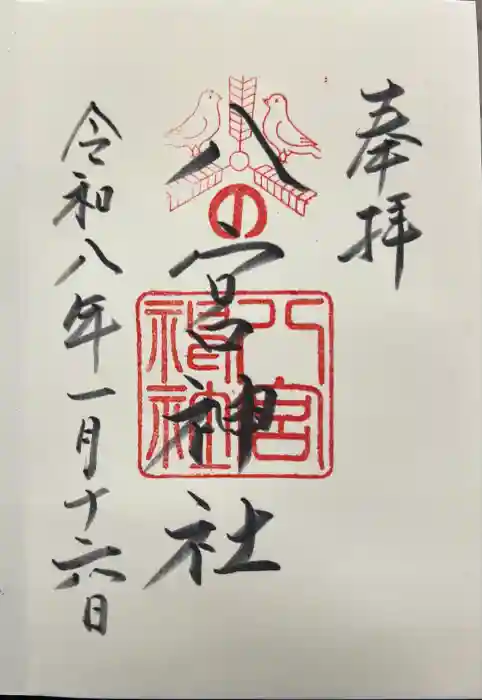 奉拝
八の宮神社
八宮神社
令和八年一月十六日